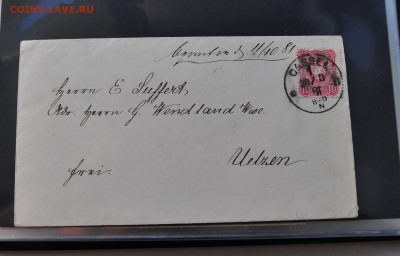 COINS.LAVE.RU
11/10 81
CASSEL
81
8-9
N
10 10
Herrn E Suffert,
Adr. Herrn G. Wendland Wwe.
Uelzen
frei.